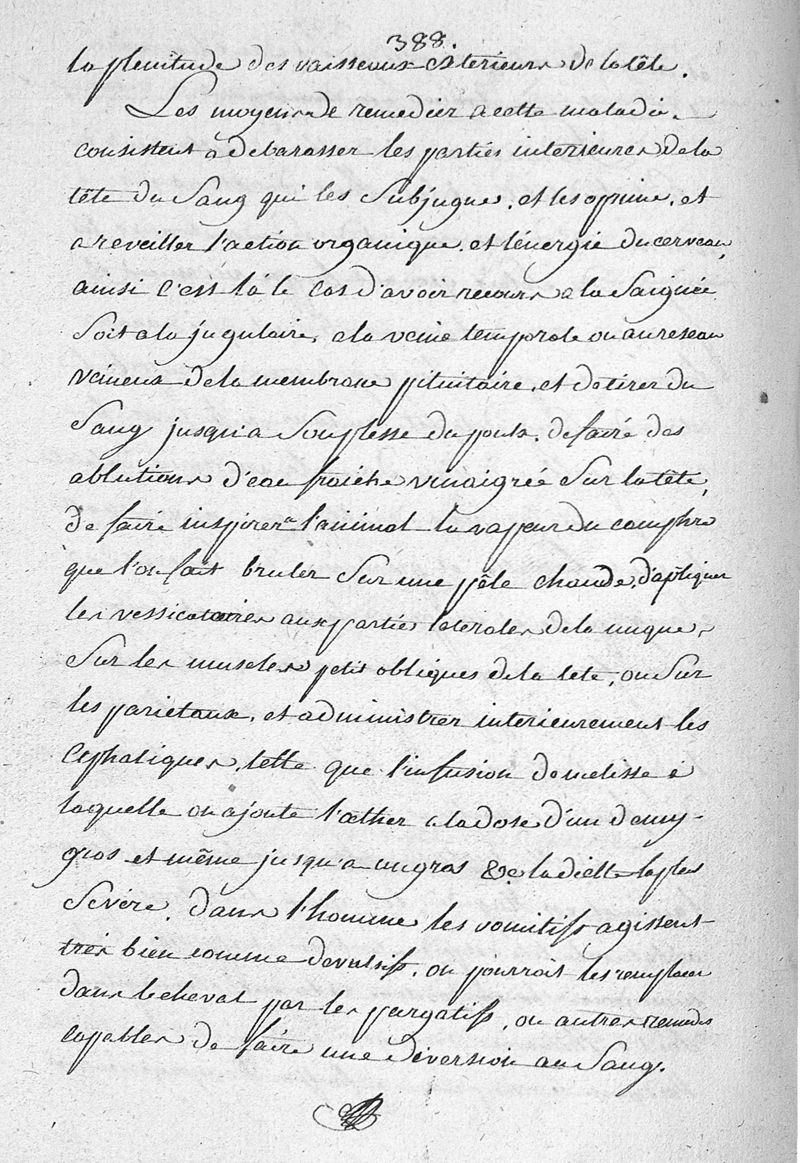 388.
la plenitude des vaisseaux exterieurs de la tête.
Les moyens de remedier a cette maladie
consistent a debarasser les parties interieures de la
tête du Sang qui les Subjugue, et les oprime, et
a reveiller l'action organique, et l'énergie du cerveau,
ainsi c'est là le Cas d'avoir recours a la Saignée
Soit a la jugulaire, a la veine temporale ou au reseau
veineux de la membrane pituitaire, et de tirer du
Sang jusqu'a Souplesse du pouls, de faire des
ablutions d'eau fraiche vinaigrée Sur la tête,
de faire inspirer a l'animal la vapeur du camphre
que l'on fait bruler Sur une pêle chaude, d'apliquer
les vessicatoires aux parties laterales de la nuque,
Sur les muscles petit obliques de la tete, ou Sur
les parietaux, et administrer interieurement les
Cephaliques, telle que l'infusion de melisse à
laquelle on ajoute l'æther a la dose d'un demy-
gros et même jusqu'a un gros &c la diette la plus
Sevére. dans l'homme les vomitifs agissent
très bien comme devulsifs, on pourroit les remplacer
dans le cheval par les purgatifs, ou autres remedes
capables de faire une diversion au Sang.